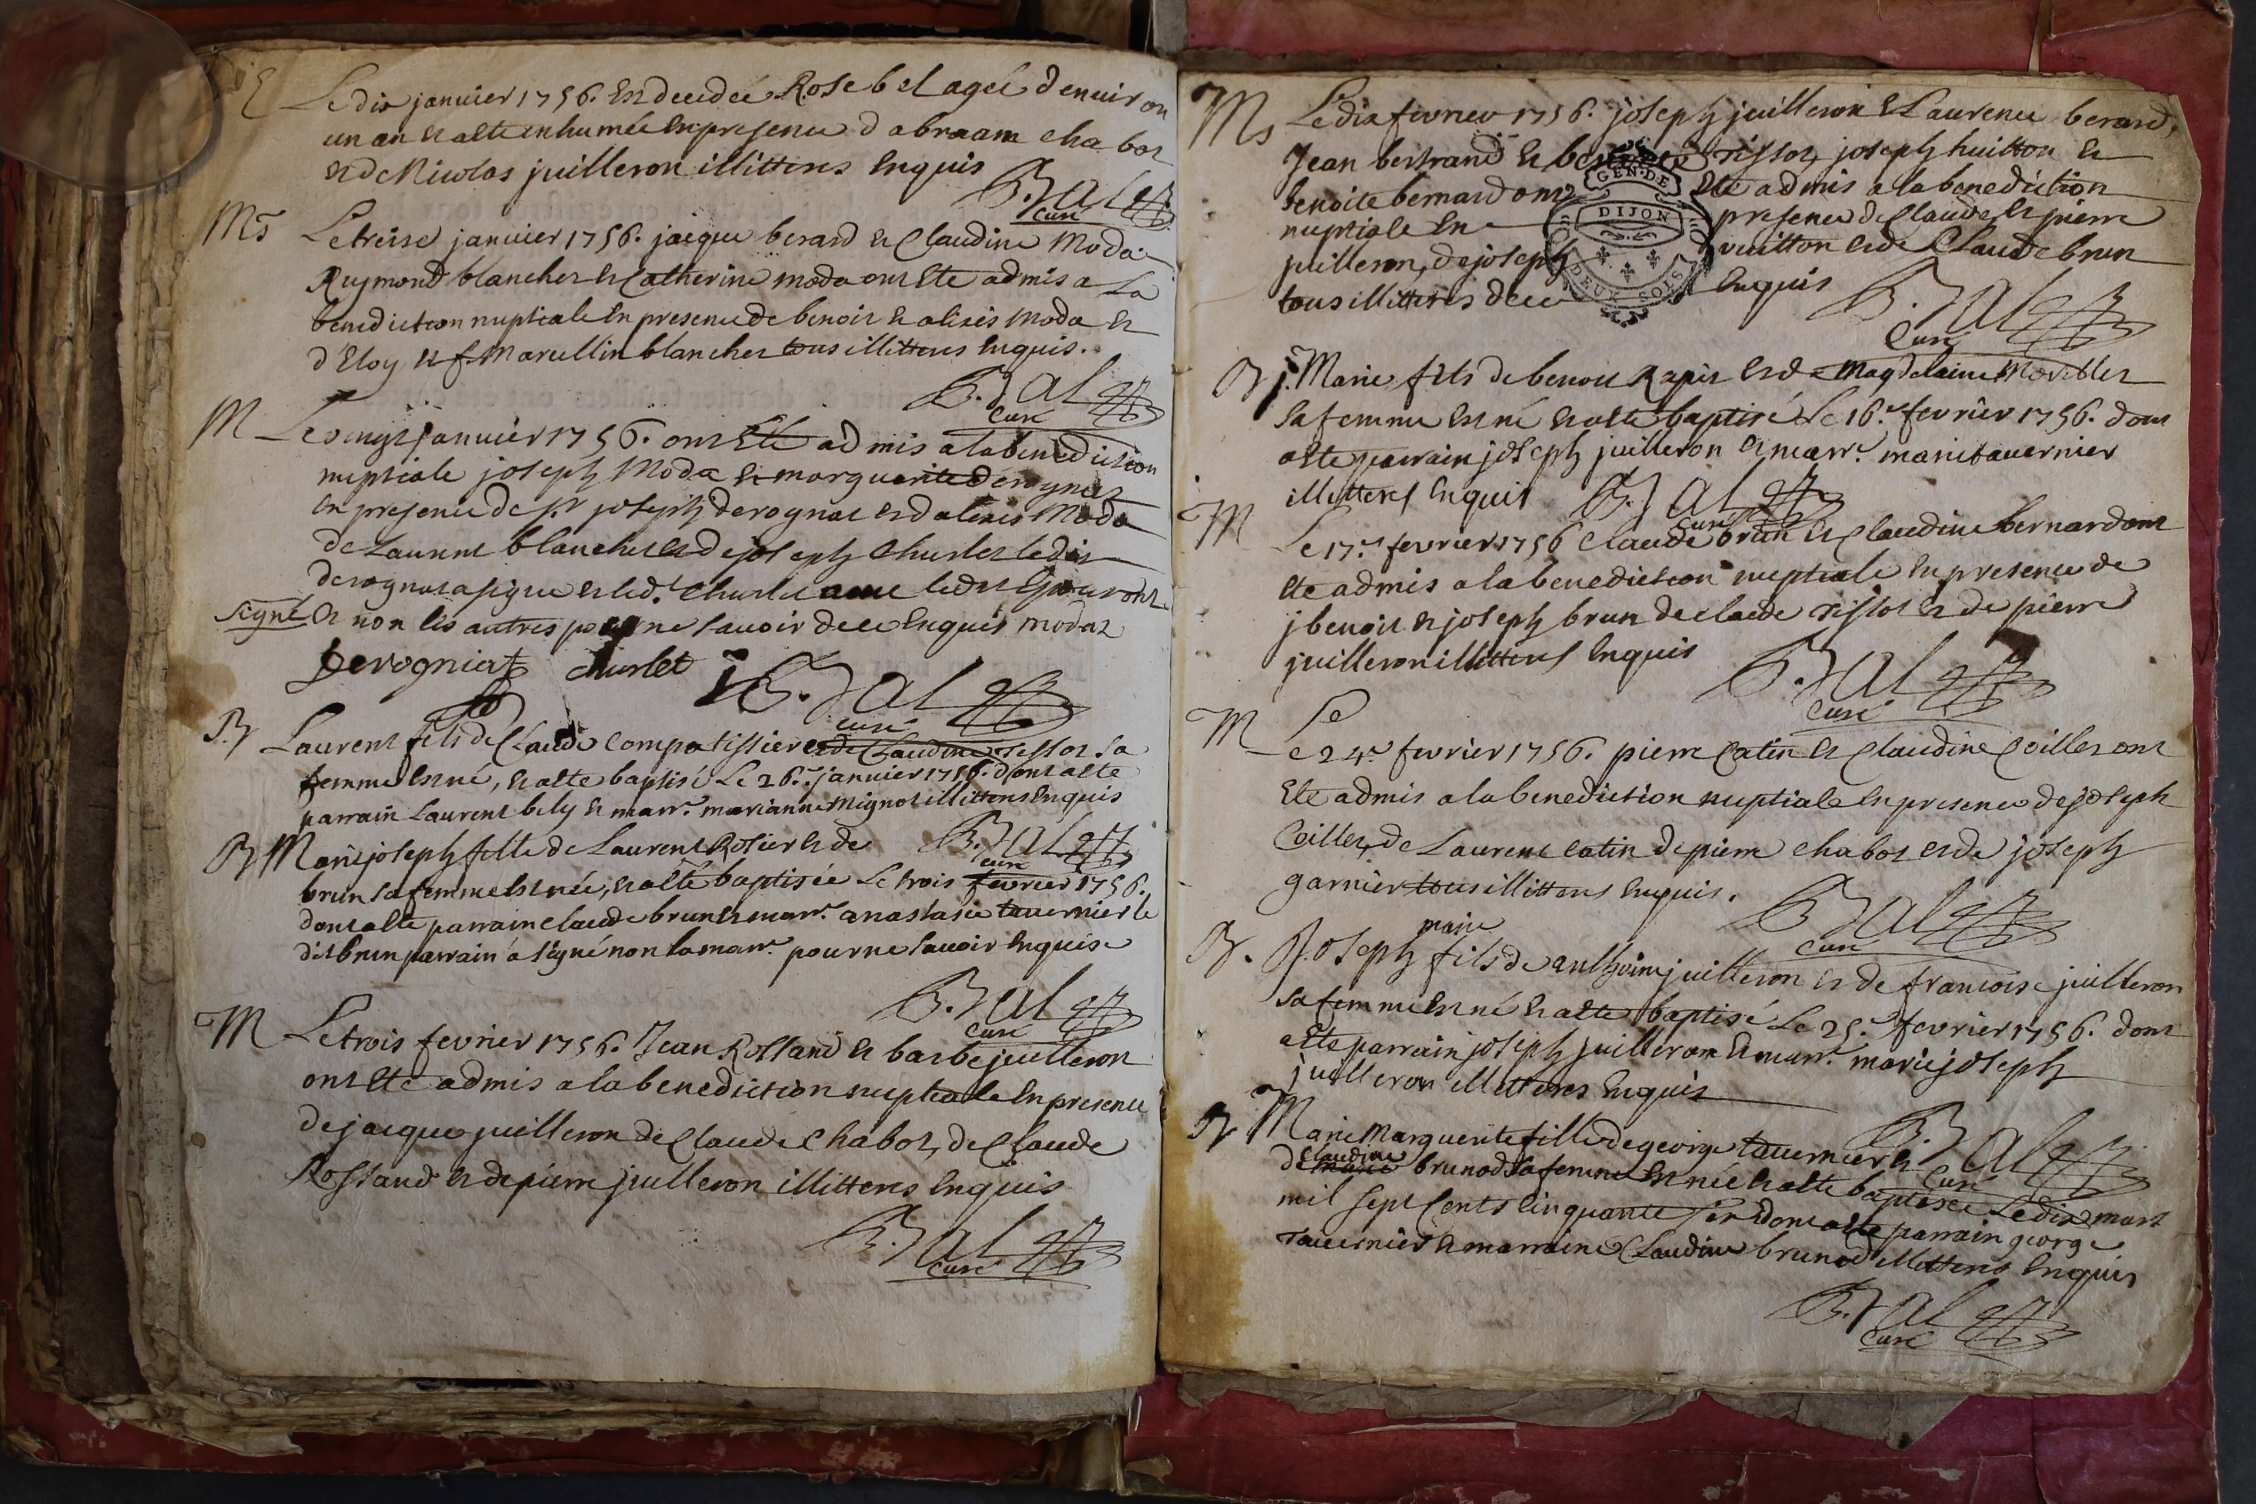 E Le dix janvier 1756. est decedée Rose bel agée d'environ
un an et a eté enhumée en presence d abraam chabot
et de Nicolas juilleron illitteres enquis
B. Bal
curé
Ms Le treise janvier 1756. jacque berard et Claudine Moda
Raymond blanchet et Catherine moda ont eté admis a La
benediction nuptiale en presence de benoit et alixis Moda et
d'Eloy et f. Marcellin blanchet tous illitteres enquis.
B. Bal
curé
M Le vingt janvier 1756. ont eté admis a la benediction
nuptiale joseph Moda et marguerite derognat
en presence de Sr joseph derognat et d alexis Moda
de Laurent blanchet et de joseph Churlet ledit
derognat a signe et led. Churlet avec ledit Epoux ont
signé et non les autres pour ne savoir de ce enquis modaz
Derogniat churlet B. Bal
curé
B Laurent fils de Claude compatissier et de Claudine tissot sa
femme est né, et a eté baptisé Le 26e janvier 1756. dont a eté
parrain Laurent bely et marr. marianne Mignot illitteres enquis
B. Bal
curé
B Marie joseph fille de Laurent Rosier et de
brun sa femme est née, et a eté baptisée Le trois fevrier 1756.
dont a eté parrain claude brun et marr. anastasie tavernier le
dit brun parrain a signé non la marr. pour ne savoir enquise
B. Bal
curé
M Le trois fevrier 1756. Jean Rolland et barbe juilleron
ont eté admis a la benediction nuptiale en presence
de jacque juilleron de Claude Chabot, de Claude
Rolland et de pierre juilleron illitteres enquis
B. Bal
curé
Ms Le dix fevrier 1756. joseph juilleron et Laurence berard,
Jean bertrand et tissot, joseph huitton et
benoite bernard ont eté admis a la benediction
nuptiale en presence de Claude et pierre
juilleron, de joseph vuitton et de Claude brun
tous illitteres de ce enquis
GEN. DE
DIJON
DEUX SOLS
B. Bal
curé
B j. Marie fils de benoit Rapit et de Magdelaine
sa femme est né et a eté baptisé Le 16e fevrier 1756. dont
a eté parrain joseph juilleron et marr. marie tavernier
illitteres enquis B. Bal
curé
M Le 17e fevrier 1756 Claude brun et Claudine bernard ont
eté admis a la benediction nuptiale en presence de
j benoit et joseph brun de claude tissot et de pierre
juilleron illitteres enquis B. Bal
curé
M Le
24e fevrier 1756. pierre Catin et Claudine Coillet ont
eté admis a la benediction nuptiale en presence de joseph
Coillet, de Laurent catin de pierre chabot et de joseph
garnier tous illitteres enquis.
B. Bal
curé
marie
B. Joseph fils de anthoine juilleron et de francoise juilleron
sa femme est né et a eté baptisé Le 25e fevrier 1756. dont
a eté parrain joseph juilleron et marr. marie joseph
juilleron illitteres enquis
B. Bal
curé
B Marie Marguerite fille de george tavernier et
claudine
de brunod sa femme est née et a eté baptisée Le dix mars
mil sept Cents cinquante six dont a eté parrain george
tavernier et marraine Claudine brunod illitteres enquis
B. Bal
curé